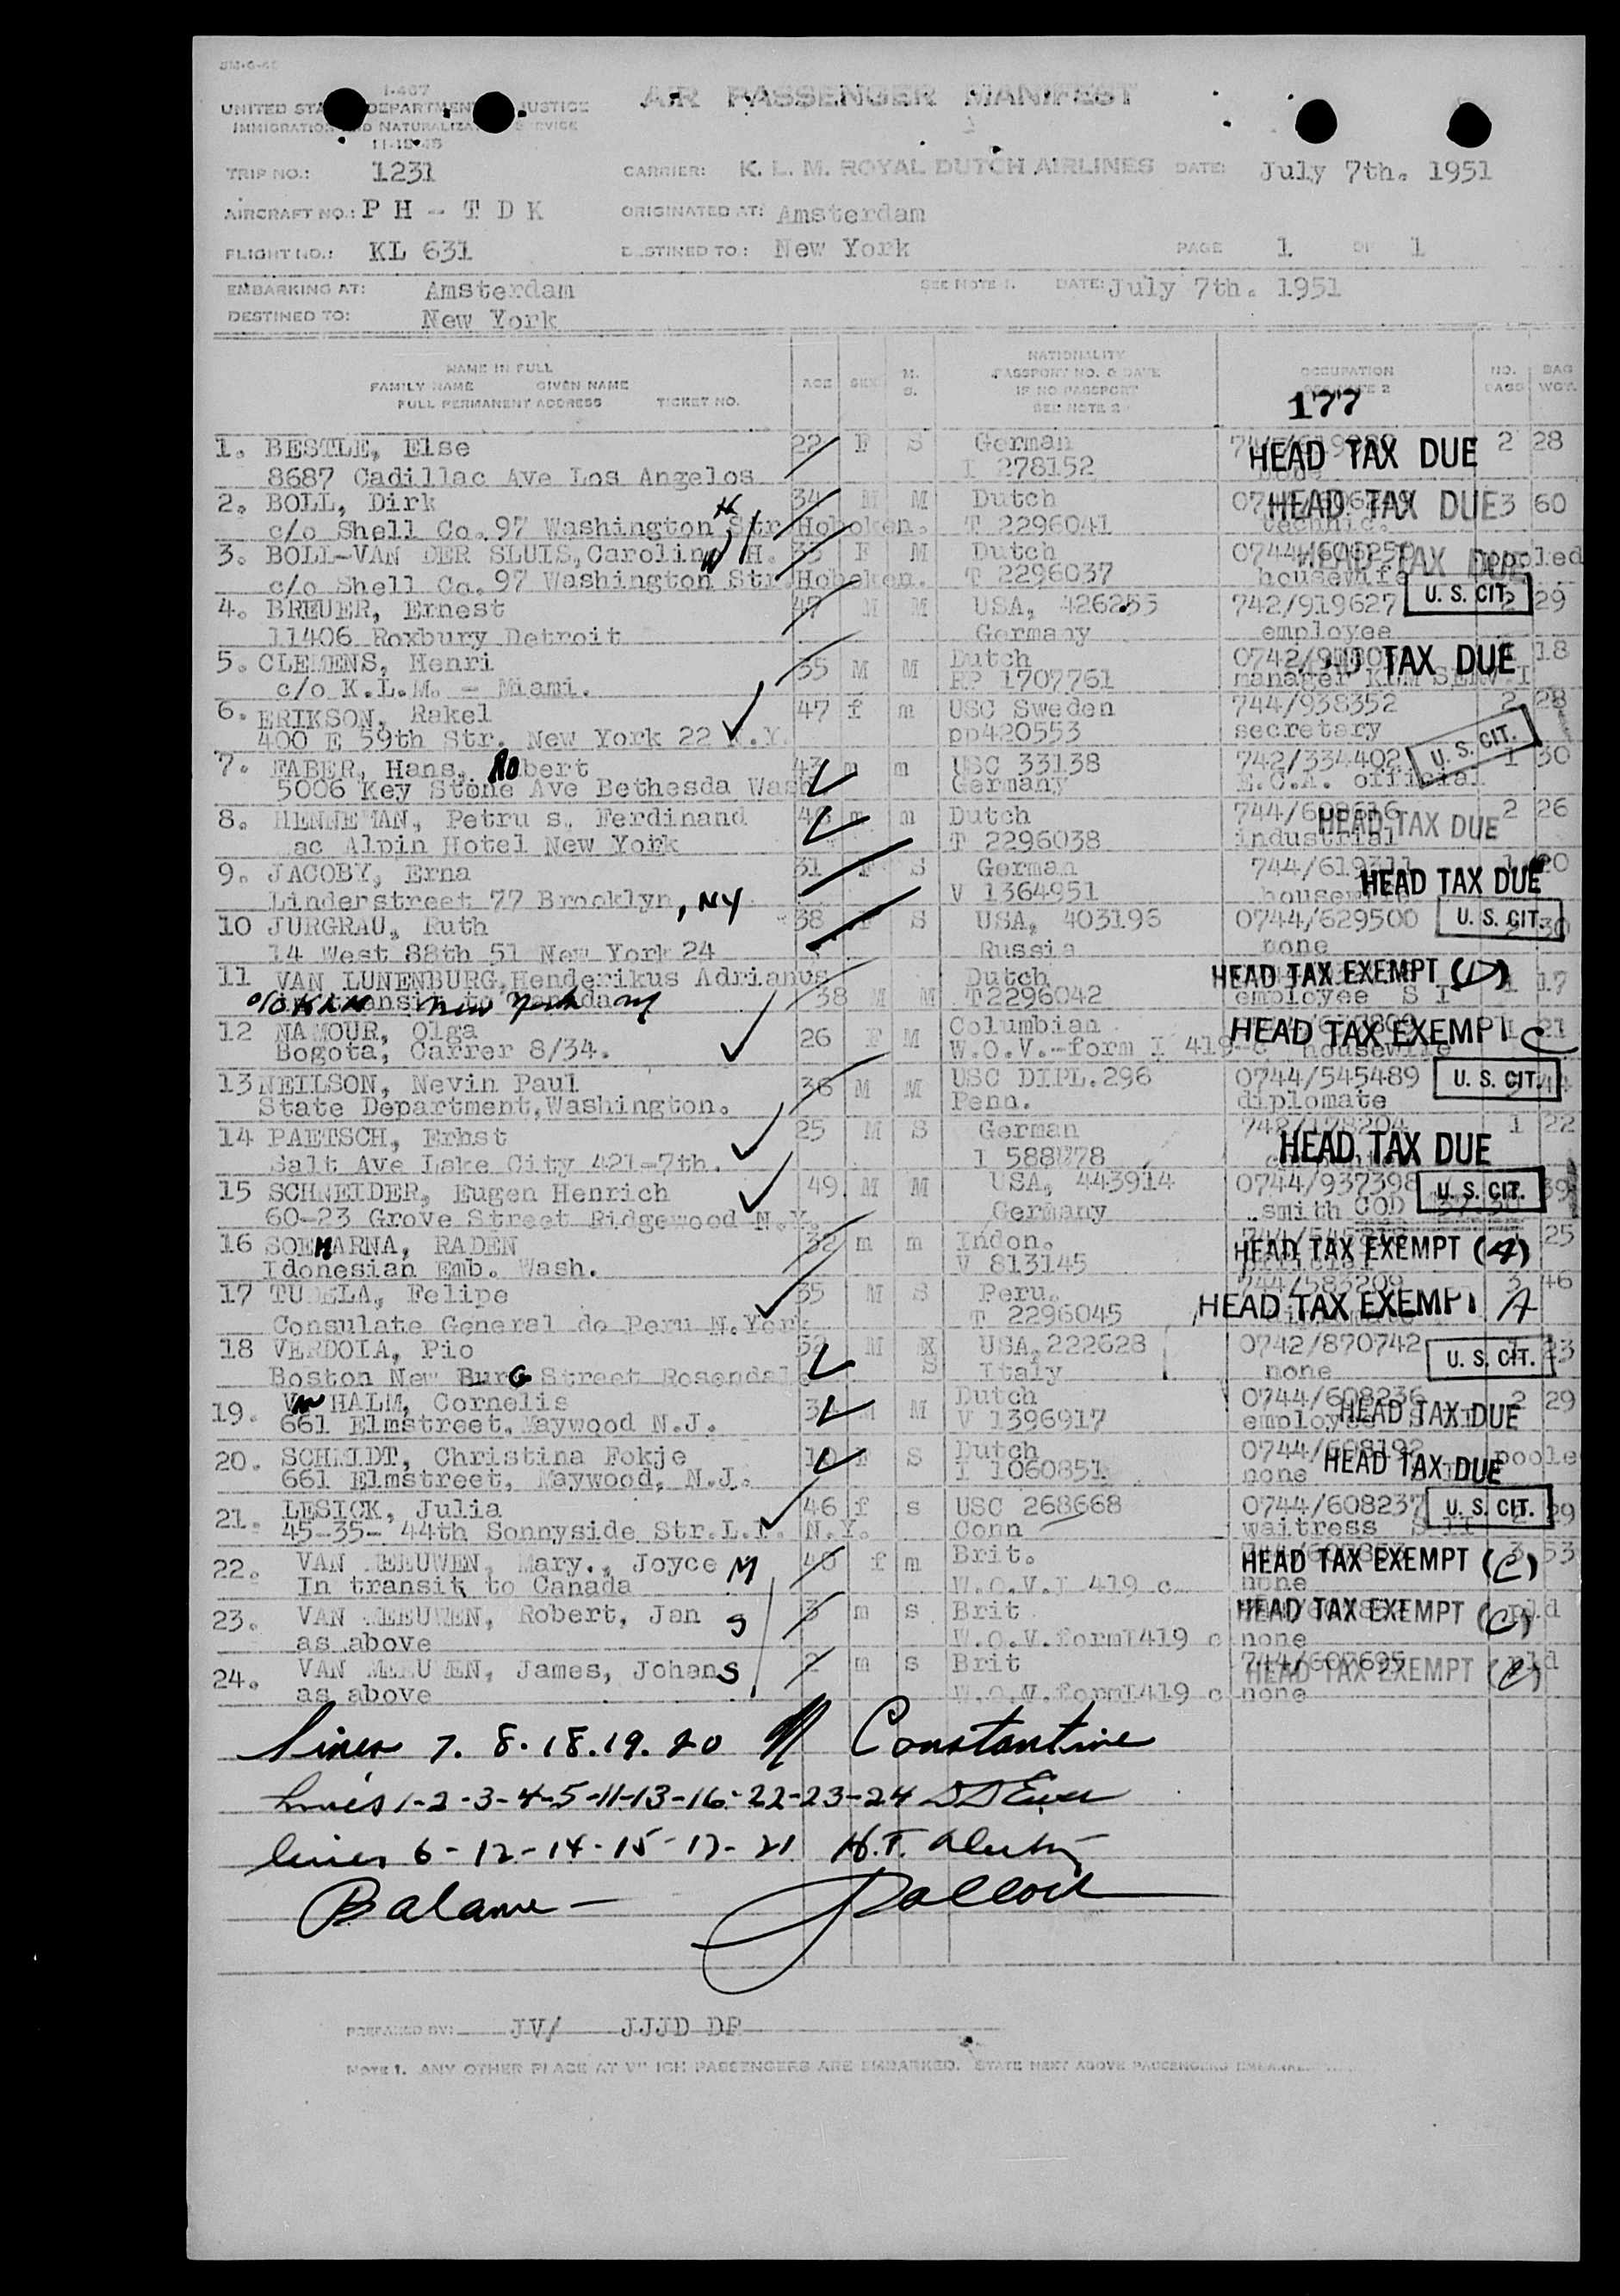 I-407
UNITED STA DEPARTMEN JUSTICE
IMMIGRATIO D NATURALIZA S RVICE
AIR PASSENGER MANIFEST
TRIP NO.: 1231 CARRIER: K. L. M. ROYAL DUTCH AIRLINES DATE: July 7th. 1951
AIRCRAFT NO.: P H - T D K ORIGINATED AT: Amsterdam
FLIGHT NO.: KL 631 DESTINED TO: New York PAGE 1 OF 1
EMBARKING AT: Amsterdam SEE NOTE 1. DATE: July 7th. 1951
DESTINED TO: New York
NAME IN FULL
FAMILY NAME GIVEN NAME
FULL PERMANENT ADDRESS TICKET NO.
AGE SEX M. S.
NATIONALITY
PASSPORT NO. & DATE
IF NO PASSPORT
SEE NOTE 2
OCCUPATION
SEE NOTE 2
177
NO. BAG
PASS WGT.
1. BESTLE, Else 22 F S German HEAD TAX DUE 2 28
8687 Cadillac Ave Los Angelos I 278152
2. BOLL, Dirk 34 M M Dutch HEAD TAX DUE 3 60
c/o Shell Co. 97 Washington Str Hoboken. T 2296041 technic.
3. BOLL-VAN DER SLUIS, Carolin H. 33 F M Dutch 0744/606250 HEAD TAX DUE pooled
c/o Shell Co. 97 Washington Str. Hoboken. T 2296037 housewife
4. BREUER, Ernest 47 M M USA, 426253 742/919627 U. S. CIT. 2 29
11406 Roxbury Detroit Germany employee
5. CLEMENS, Henri 35 M M Dutch HEAD TAX DUE 18
c/o K.L.M. - Miami. RP 1707761 manager KLM
6. ERIKSON, Rakel 47 f m USC Sweden 744/938352 2 28
400 E 59th Str. New York 22 N.Y. pp420553 secretary
7. FABER, Hans, Robert 43 m m USC 33138 742/334402 U. S. CIT. 1 30
5006 Key Stone Ave Bethesda Wash Germany E.C.A. official
8. HENNEMAN, Petru s, Ferdinand 46 m m Dutch 744/608616 HEAD TAX DUE 2 26
ac Alpin Hotel New York T 2296038 industrial
9. JACOBY, Erna 31 F S German 744/619311 1 20
Linderstreet 77 Brooklyn, NY V 1364951 housewife HEAD TAX DUE
10 JURGRAU, Ruth 38 F S USA, 403196 0744/629500 U. S. CIT. 30
14 West 88th 51 New York 24 Russia none
11 VAN LUNENBURG, Henderikus Adrianus 38 M M Dutch HEAD TAX EXEMPT (D) 1 17
New York T2296042 employee S I
12 NAMOUR, Olga 26 F M Columbian HEAD TAX EXEMPT C 21
Bogota, Carrer 8/34. W.O.V.-form I 419-c housewife
13 NEILSON, Nevin Paul 36 M M USC DIPL. 296 0744/545489 U. S. CIT. 44
State Department, Washington. Penn. diplomate
14 PAETSCH, Ernst 25 M S German 742/178204 HEAD TAX DUE 1 22
Salt Ave Lake City 421-7th.
15 SCHNEIDER, Eugen Henrich 49 M M USA, 443914 0744/937398 U. S. CIT. 39
60-23 Grove Street Ridgewood N.Y. Germany smith COD
16 SOEHARNA, RADEN 32 m m Indon. HEAD TAX EXEMPT (A) 25
Idonesian Emb. Wash. V 813145
17 TUDELA, Felipe 35 M S Peru. 744/583209 3 46
Consulate General de Peru N.York T 2296045 HEAD TAX EXEMPT A
18 VERDOIA, Pio 52 M S USA, 222628 0742/870742 U. S. CIT. 23
Boston New BurG Street Rosendale Italy none
19. VAN HALM, Cornelis M M Dutch 0744/608236 2 29
661 Elmstreet, Maywood N.J. V 1396917 employee HEAD TAX DUE
20. SCHMIDT, Christina Fokje 10 F S Dutch 0744/608192 poole
661 Elmstreet, Maywood, N.J. I 1060851 none HEAD TAX DUE
21. LESICK, Julia 46 f s USC 268668 0744/608237 U. S. CIT. 29
45-35- 44th Sonnyside Str. L.I. N.Y. Conn waitress
22. VAN MEEUWEN, Mary., Joyce M 40 f m Brit. HEAD TAX EXEMPT (C) 3 53
In transit to Canada W.O.V.I 419 c none
23. VAN MEEUWEN, Robert, Jan S 3 m s Brit HEAD TAX EXEMPT (C) pld
as above W.O.V.formI419 c none
24. VAN MEEUWEN, James, Johan S 2 m s Brit 744/607695 HEAD TAX EXEMPT (C) pld
as above W.O.V.formI419 c none
Lines 7. 8. 18. 19. 20 Constantine
Lines 1-2-3-4-5-11-13-16-22-23-24
lines 6-12-14-15-17-21 H.T.
Balance - Pollock
PREPARED BY: JV/ JJJD DP
NOTE 1. ANY OTHER PLACE AT WHICH PASSENGERS ARE EMBARKED. STATE NEXT ABOVE PASSENGERS